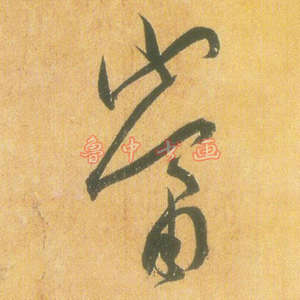 嘗
鲁中书画